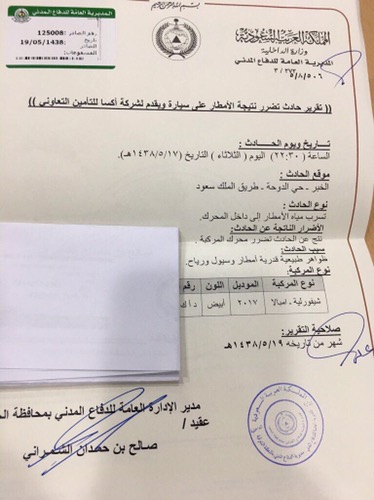 المديرية العامة للدفاع المدني
رقم الصادر: 125008
تاريخ
الصادر: 19/05/1438
المشفوعات:
المملكة العربية السعودية
وزارة الداخلية
المديرية العامة للدفاع المدني
(( تقرير حادث تضرر نتيجة الأمطار على سيارة ويقدم لشركة أكسا للتأمين التعاوني ))
تاريخ ويوم الحادث :
الساعة ( ٢٢:٣٠ ) اليوم ( الثلاثاء ) التاريخ (١٤٣٨/٥/١٧هـ).
موقع الحادث :
الخبر – حي الدوحة – طريق الملك سعود
نوع الحادث :
تسرب مياه الأمطار إلى داخل المحرك.
الأضرار الناتجة عن الحادث:
نتج عن الحادث تضرر محرك المركبة .
سبب الحادث:
ظواهر طبيعية قدرية أمطار وسيول ورياح.
نوع المركبة:
نوع المركبة الموديل اللون رقم
شيفورلية - امبالا ٢٠١٧ أبيض
صلاحية التقرير:
شهر من تاريخه ١٤٣٨/٥/١٩هـ
مدير الإدارة العامة للدفاع المدني بمحافظة
عقيد /
صالح بن حمدان الشمراني